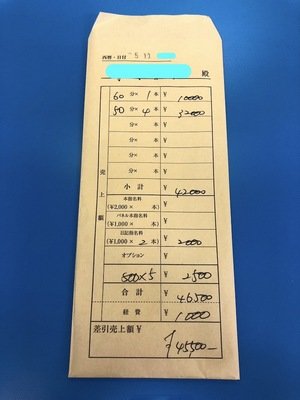 西暦・日付 5 11
殿
60 分× 1 本 ¥ 10000
50 分× 4 本 ¥ 32000
分× 本 ¥
分× 本 ¥
分× 本 ¥
分× 本 ¥
売上額
小計 ¥ 42000
本指名料
(¥2,000 × 本) ¥
パネル本指名料
(¥1,000 × 本) ¥
日記指名料
(¥1,000 × 2 本) ¥ 2000
オプション ¥
500×5 ¥ 2500
合計 ¥ 46500
経費 ¥ 1000
差引売上額 ¥ ¥45500-